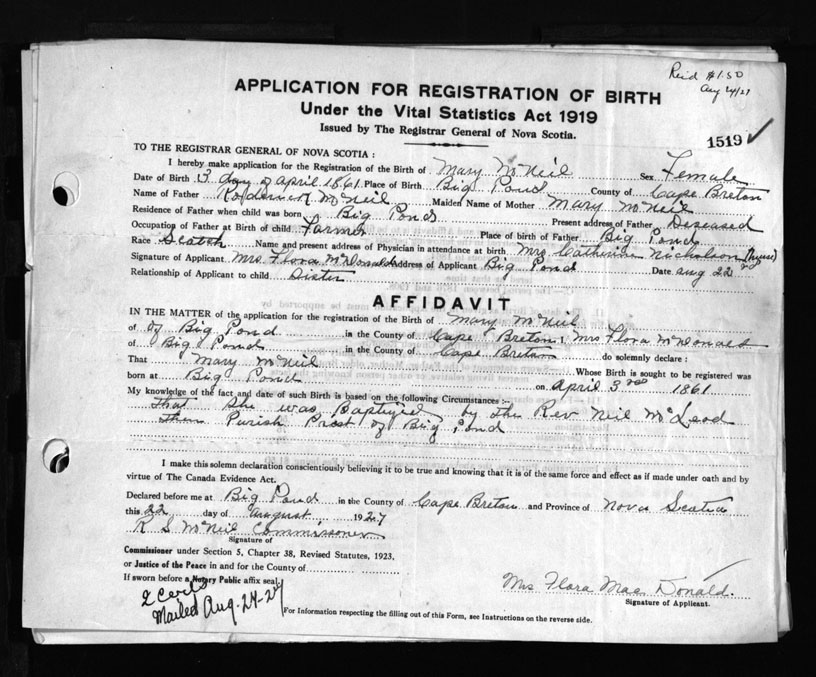 Rec'd $1.50
Aug 24/27
APPLICATION FOR REGISTRATION OF BIRTH
Under the Vital Statistics Act 1919
Issued by The Registrar General of Nova Scotia.
1519
TO THE REGISTRAR GENERAL OF NOVA SCOTIA :
I hereby make application for the Registration of the Birth of Mary McNeil Sex Female
Date of Birth 3 day of April 1861 Place of Birth Big Pond County of Cape Breton
Name of Father McNeil Maiden Name of Mother Mary McNeil
Residence of Father when child was born Big Pond Present address of Father Deseased
Occupation of Father at Birth of child Farmer Place of birth of Father Big Pond
Race Scotch Name and present address of Physician in attendance at birth Mrs Catherine Nicholson (nurse)
Signature of Applicant Mrs Flora McDonald Address of Applicant Big Pond Date Aug 22
Relationship of Applicant to child Sister
AFFIDAVIT
IN THE MATTER of the application for the registration of the Birth of Mary McNeil
of of Big Pond in the County of Cape Breton, Mrs Flora McDonald
of Big Pond in the County of Cape Breton do solemnly declare :
That Mary McNeil Whose Birth is sought to be registered was
born at Big Pond on April 3rd 1861
My knowledge of the fact and date of such Birth is based on the following Circumstances :-
that she was Baptized by the Rev Neil McLeod
then Parish Prest of Big Pond
I make this solemn declaration conscientiously believing it to be true and knowing that it is of the same force and effect as if made under oath and by
virtue of The Canada Evidence Act.
Declared before me at Big Pond in the County of Cape Breton and Province of Nova Scotia
this 22 day of August 1927
R S McNeil Commissoner
Signature of
Commissioner under Section 5, Chapter 38, Revised Statutes, 1923,
or Justice of the Peace in and for the County of
If sworn before a Notary Public affix seal.
Mrs Flora MacDonald.
Signature of Applicant.
2 Certs
Mailed Aug-24-27
For Information respecting the filling out of this Form, see Instructions on the reverse side.